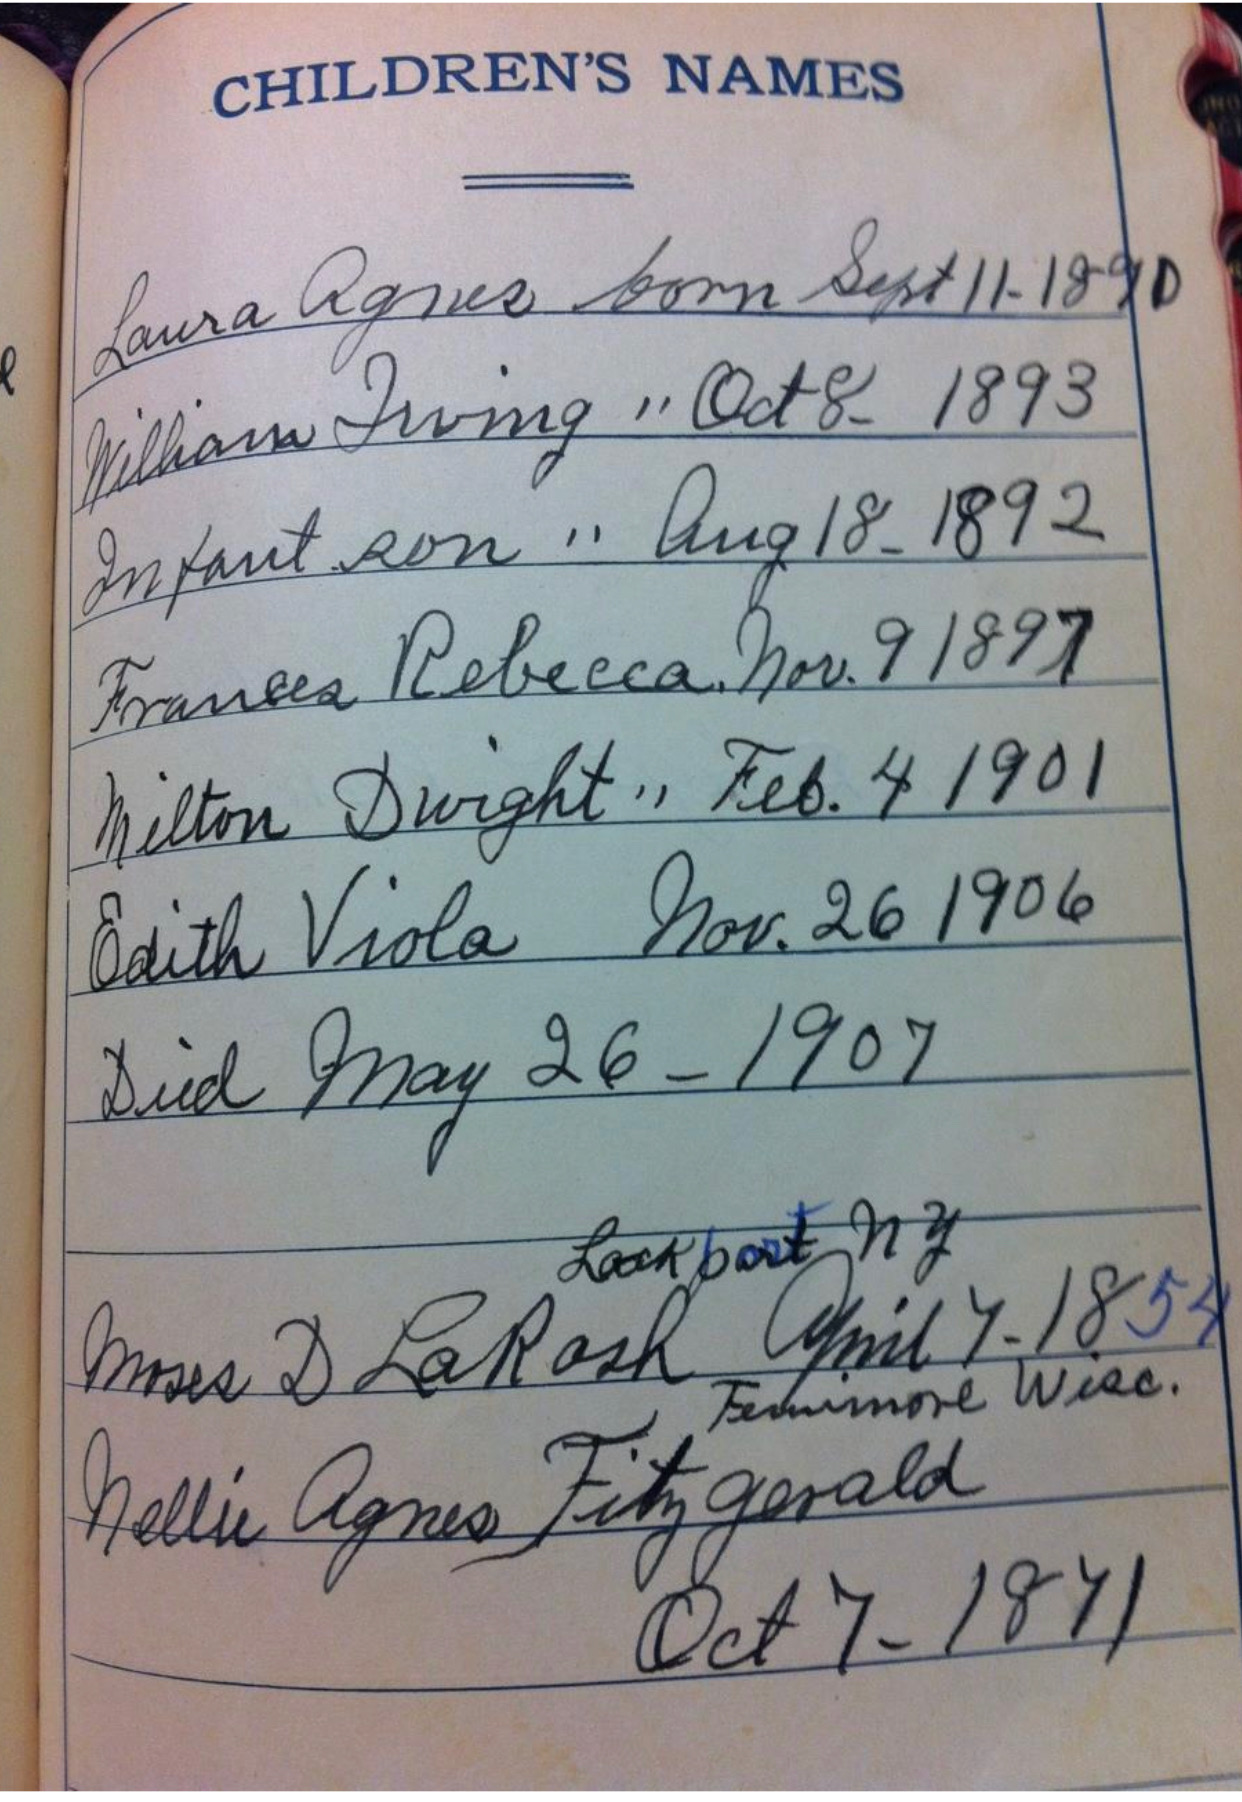 CHILDREN'S NAMES
Laura Agnes born Sept 11-1890
William Irving " Oct 8- 1893
Infant son " Aug 18- 1892
Frances Rebecca. Nov. 9 1897
Milton Dwight " Feb. 4 1901
Edith Viola Nov. 26 1906
Died May 26-1907
Lockport NY
Moses D LaRosh April 7-1854
Fennimore Wisc.
Nellie Agnes Fitzgerald
Oct 7-1871